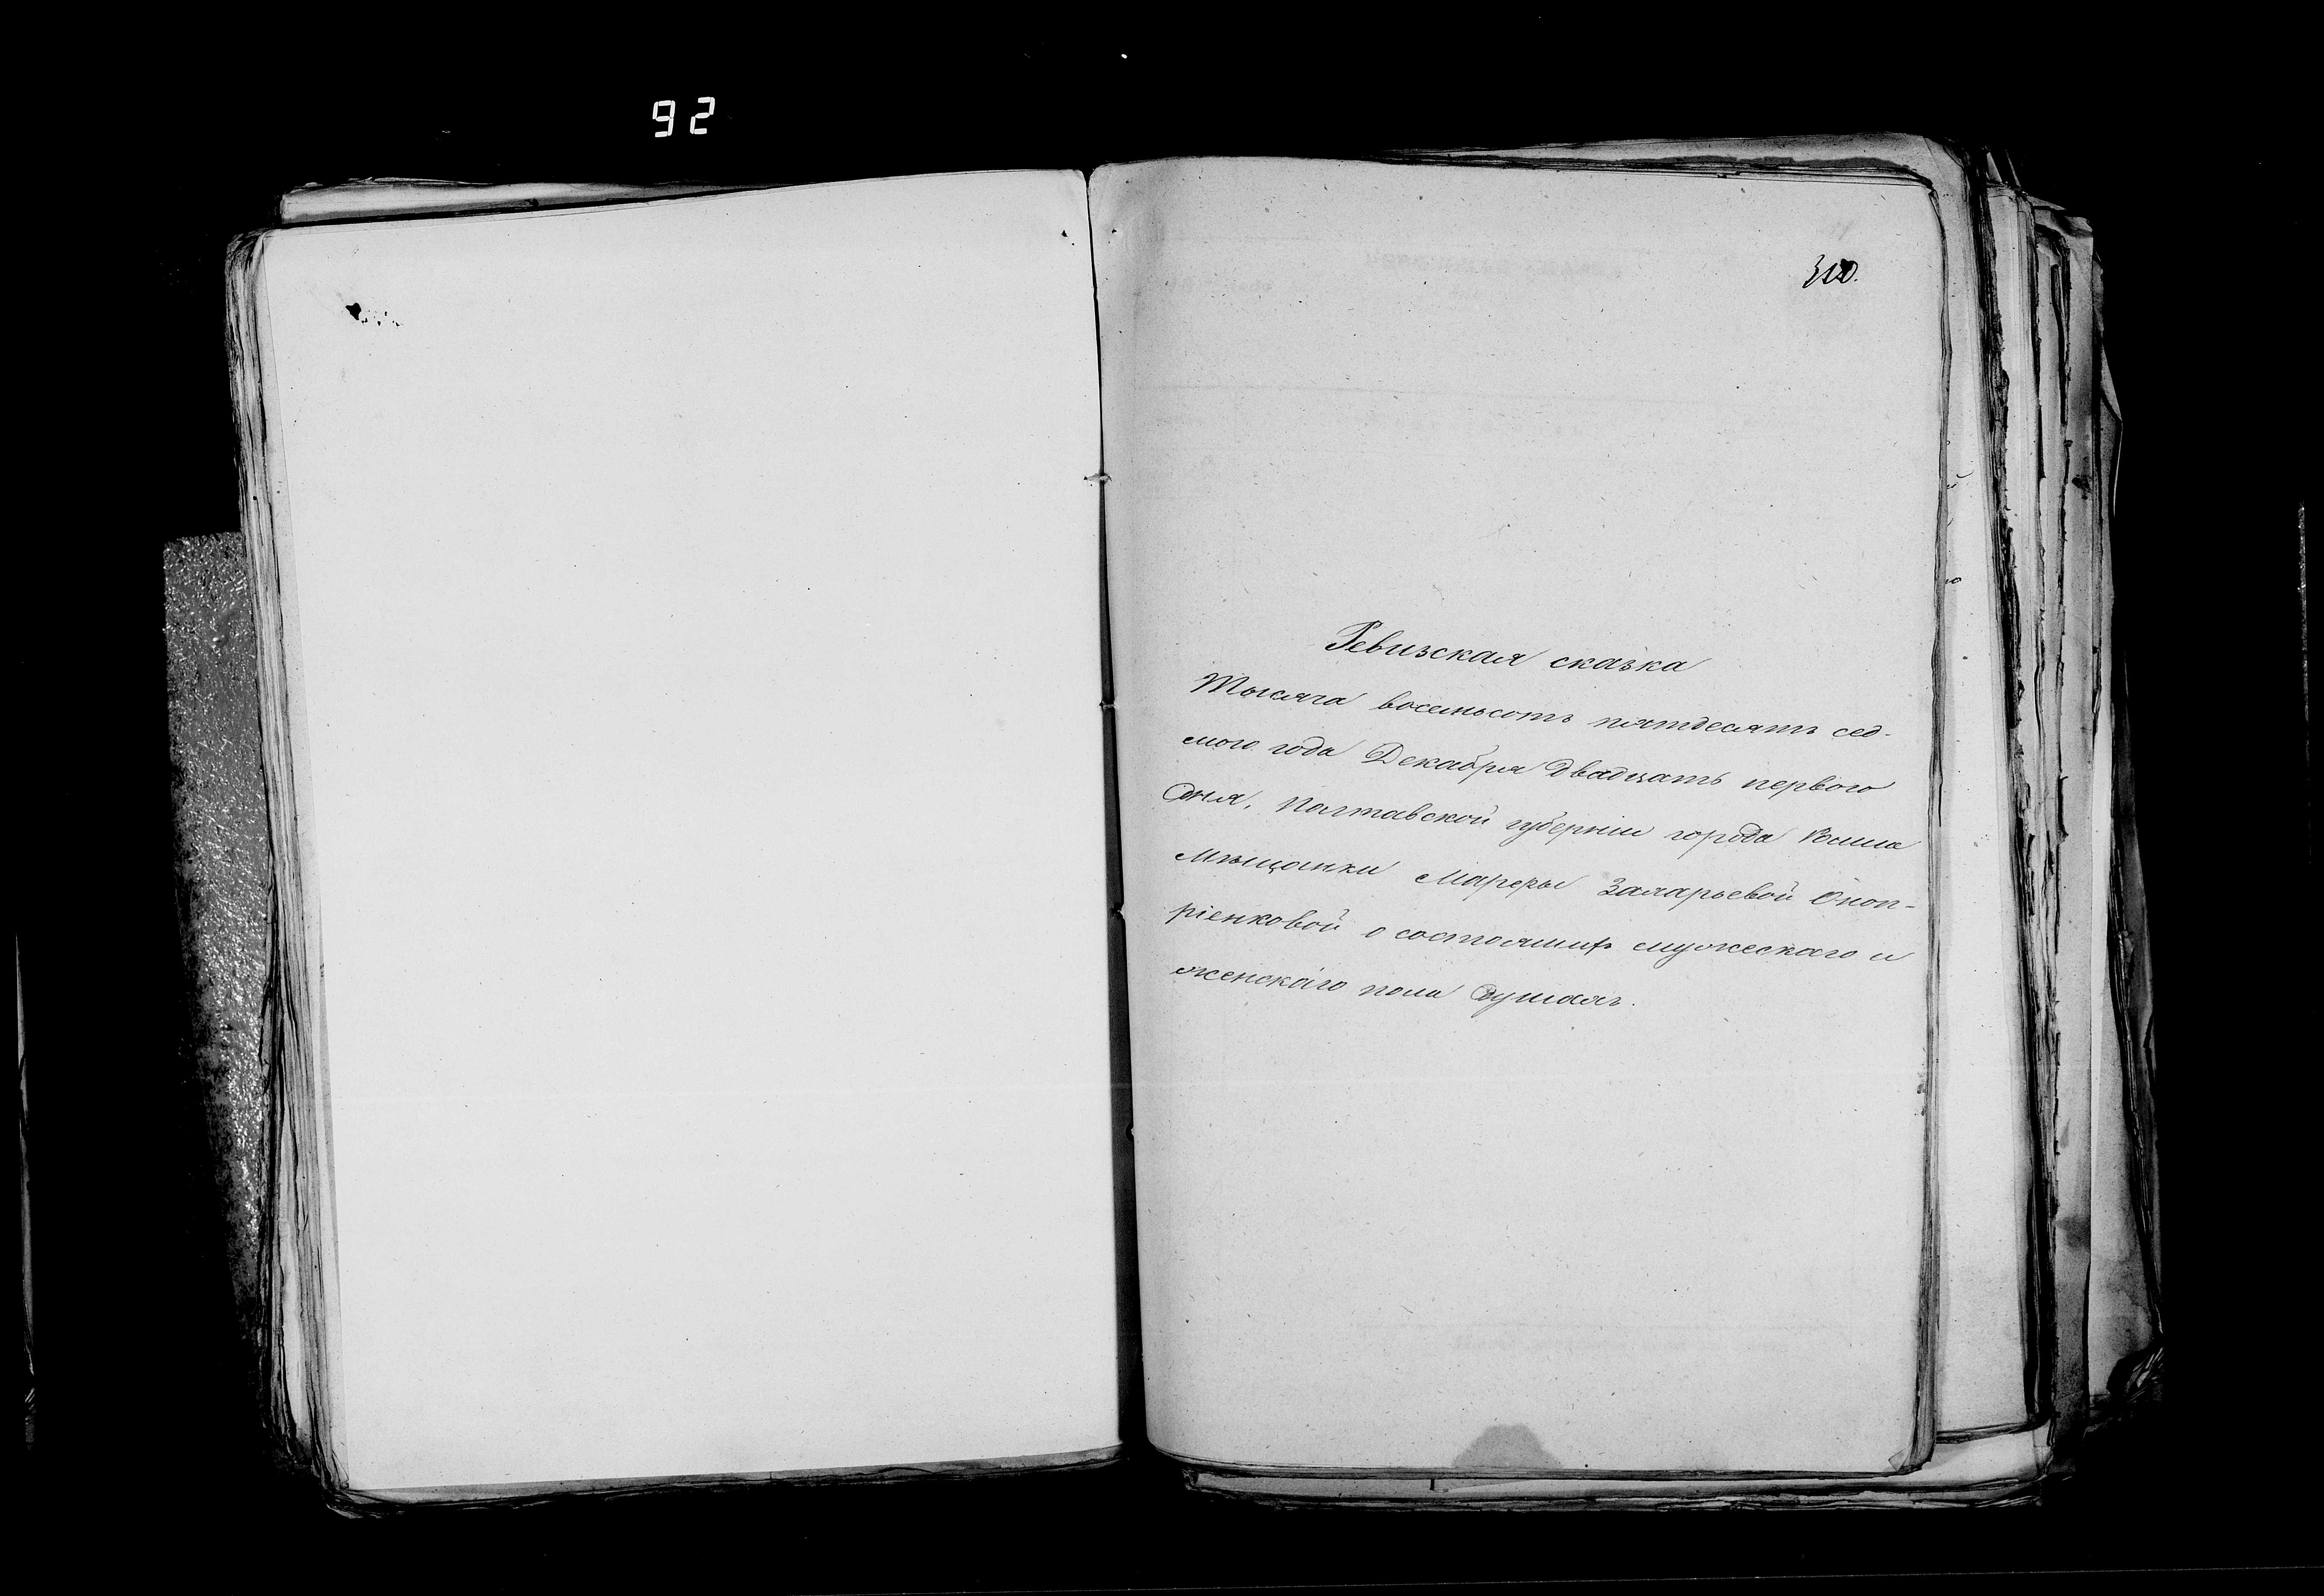 92
310.
Ревизская сказка
Тысяча восемьсотъ пятдесятъ сед-
мого года Декабря двадцать первого
дня, Полтавской губерніи города Ромна
Мѣщанки Марфы Захарьевой Оноп-
ріенковой о состоящихъ мужескаго и
женскаго пола душахъ.